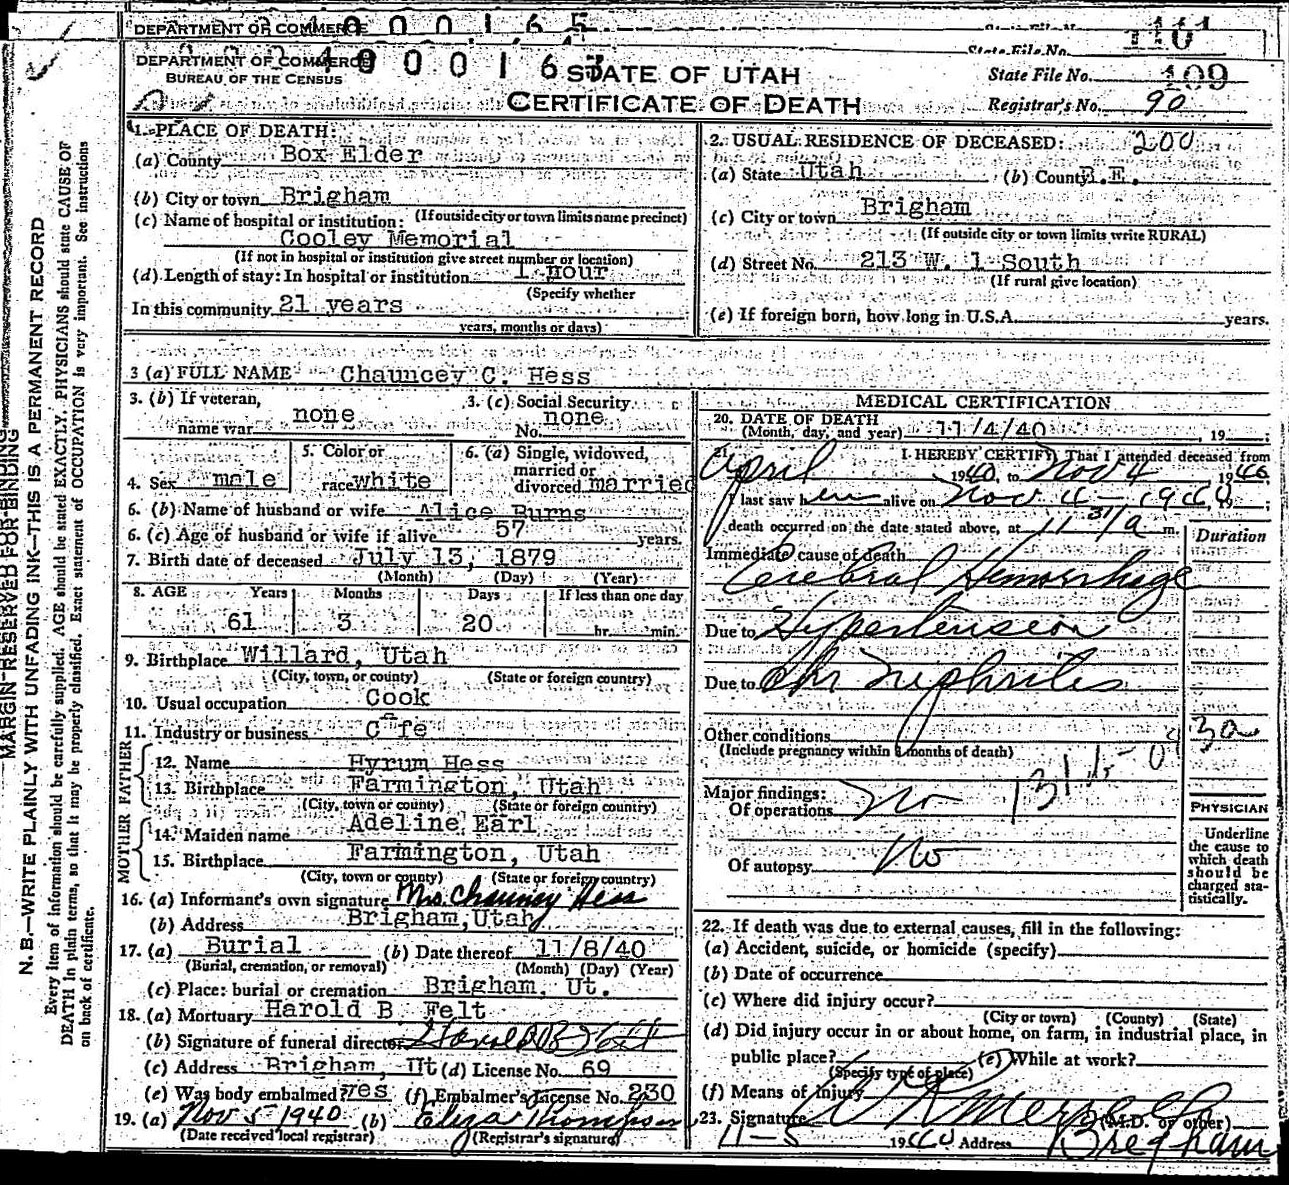 DEPARTMENT OF COMMERCE
DEPARTMENT OF COMMERCE
BUREAU OF THE CENSUS
STATE OF UTAH
CERTIFICATE OF DEATH
State File No.
State File No. 109
Registrar's No. 90
MARGIN RESERVED FOR BINDING
N. B.—WRITE PLAINLY WITH UNFADING INK—THIS IS A PERMANENT RECORD
Every item of information should be carefully supplied. AGE should be stated EXACTLY. PHYSICIANS should state CAUSE OF
DEATH in plain terms, so that it may be properly classified. Exact statement of OCCUPATION is very important. See instructions
on back of certificate.
1. PLACE OF DEATH:
(a) County Box Elder
(b) City or town Brigham
(If outside city or town limits name precinct)
(c) Name of hospital or institution:
Cooley Memorial
(If not in hospital or institution give street number or location)
(d) Length of stay: In hospital or institution 1 hour
(Specify whether
In this community 21 years
years, months or days)
2. USUAL RESIDENCE OF DECEASED: 200
(a) State Utah (b) County B.E.
(c) City or town Brigham
(If outside city or town limits write RURAL)
(d) Street No. 213 W. 1 South
(If rural give location)
(e) If foreign born, how long in U.S.A. years.
3 (a) FULL NAME Chauncey C. Hess
3. (b) If veteran, name war none
3. (c) Social Security No. none
4. Sex male
5. Color or race white
6. (a) Single, widowed, married or divorced married
6. (b) Name of husband or wife Alice Burns
6. (c) Age of husband or wife if alive 57 years.
7. Birth date of deceased July 13, 1879
(Month) (Day) (Year)
8. AGE Years Months Days If less than one day
61 3 20 hr. min.
9. Birthplace Willard, Utah
(City, town, or county) (State or foreign country)
10. Usual occupation Cook
11. Industry or business Cafe
FATHER
12. Name Hyrum Hess
13. Birthplace Farmington, Utah
(City, town or county) (State or foreign country)
MOTHER
14. Maiden name Adeline Earl
15. Birthplace Farmington, Utah
(City, town or county) (State or foreign country)
16. (a) Informant's own signature Mrs. Chauncy Hess
(b) Address Brigham, Utah
17. (a) Burial (b) Date thereof 11/8/40
(Burial, cremation, or removal) (Month) (Day) (Year)
(c) Place: burial or cremation Brigham, Ut.
18. (a) Mortuary Harold B Felt
(b) Signature of funeral director Harold B Felt
(c) Address Brigham, Ut (d) License No. 69
(e) Was body embalmed? yes (f) Embalmer's License No. 230
19. (a) Nov 5 1940 (b) Eliza Thompson
(Date received local registrar) (Registrar's signature)
MEDICAL CERTIFICATION
20. DATE OF DEATH
(Month, day, and year) 11/4/40, 19 ;
21. I HEREBY CERTIFY, That I attended deceased from
April 1940, to Nov 4 1940
I last saw him alive on Nov 4 - 1940, 19 ;
death occurred on the date stated above, at 11 31/a m.
Duration
Immediate cause of death
Cerebral Hemorrhage
Due to Hypertension
Due to Chr Nephritis
Other conditions
(Include pregnancy within 3 months of death)
Major findings:
Of operations No
Of autopsy No
PHYSICIAN
Underline
the cause to
which death
should be
charged sta-
tistically.
22. If death was due to external causes, fill in the following:
(a) Accident, suicide, or homicide (specify)
(b) Date of occurrence
(c) Where did injury occur?
(City or town) (County) (State)
(d) Did injury occur in or about home, on farm, in industrial place, in
public place? (e) While at work?
(Specify type of place)
(f) Means of Injury
23. Signature (M.D. or other)
11-5 1940 Address Brigham